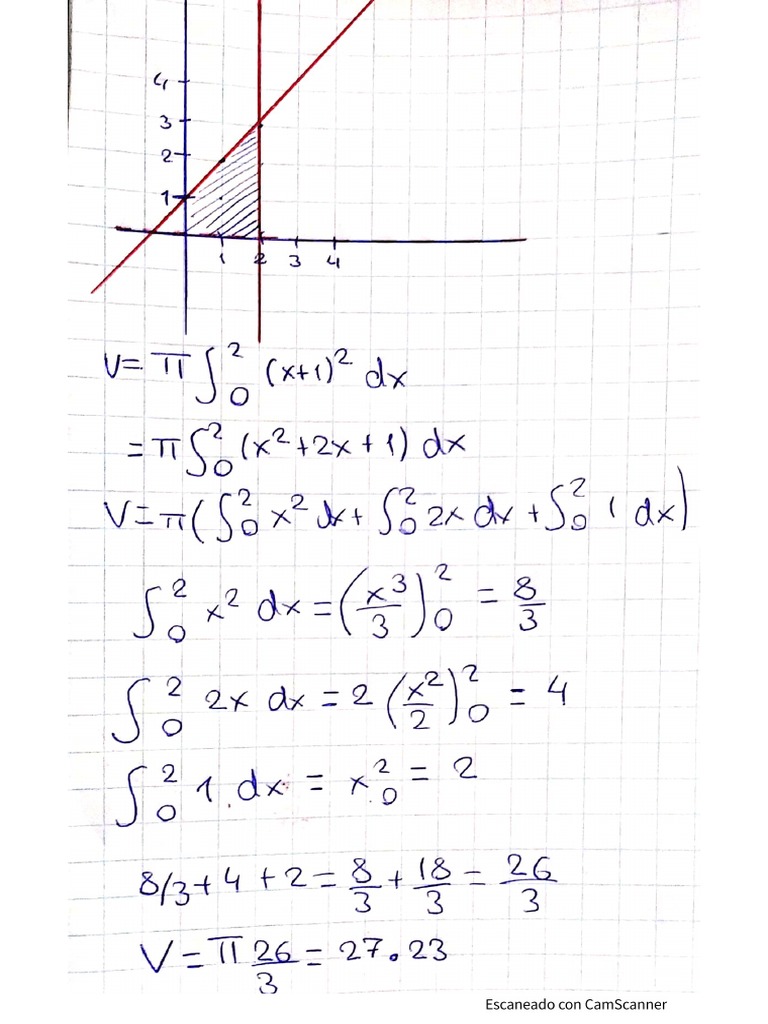 4
3
2
1
1 2 3 4
V= π ∫₀² (x+1)² dx
= π ∫₀² (x²+2x+1) dx
V=π(∫₀² x² dx + ∫₀² 2x dx + ∫₀² 1 dx)
∫₀² x² dx = (x³/3)₀² = 8/3
∫₀² 2x dx = 2 (x²/2)₀² = 4
∫₀² 1 dx = x₀² = 2
8/3 + 4 + 2 = 8/3 + 18/3 = 26/3
V = π 26/3 = 27.23
Escaneado con CamScanner